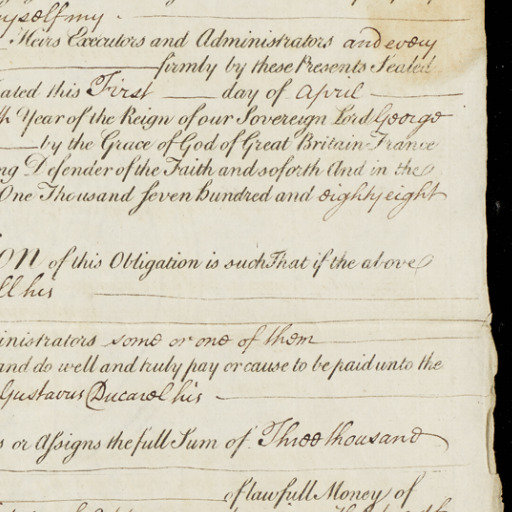 myself my
Heirs Executors and Administrators and every
firmly by these Presents Sealed
ated this First day of April
th Year of the Reign of our Sovereign Lord George
by the Grace of God of Great Britain France
ng Defender of the Faith and soforth And in the
One Thousand Seven Hundred and eighty eight
ON of this Obligation is such That if the above
ll his
inistrators some or one of them
and do well and truly pay or cause to be paid unto the
Gustavus Ducarel his
s or Assigns the full Sum of Three thousand
of lawfull Money of